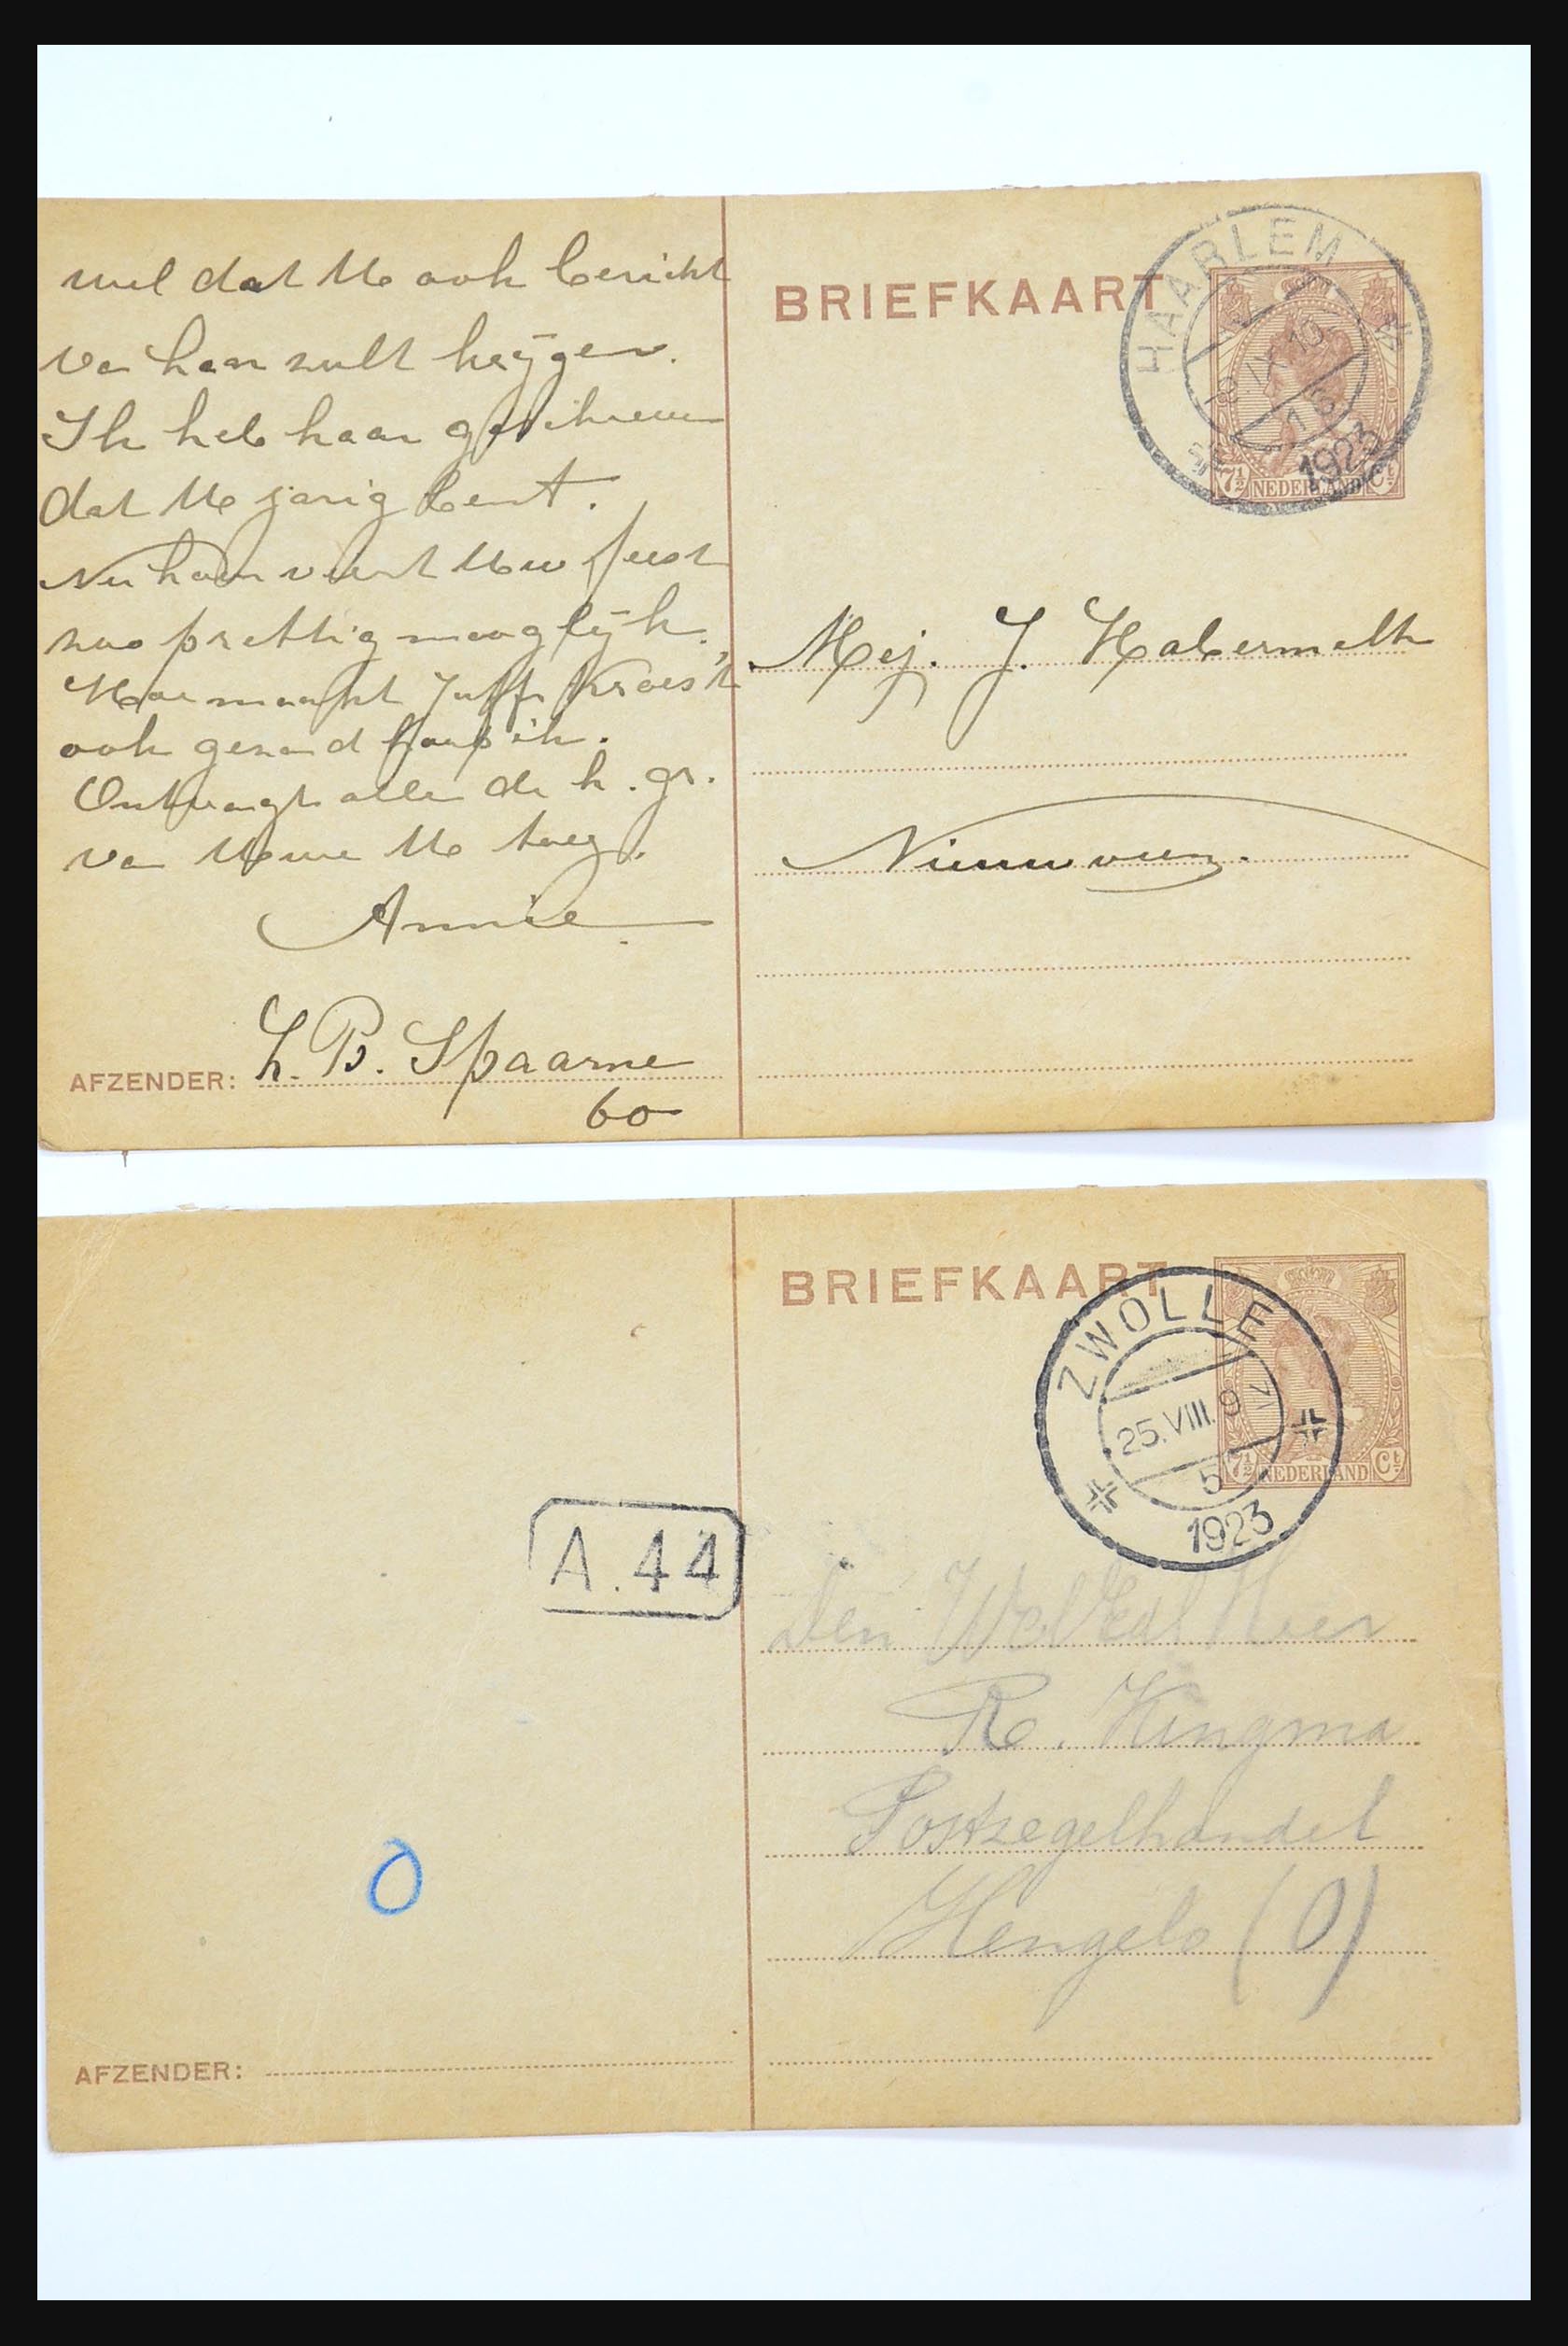 wel dat U ook bericht
van haar zult krijgen.
Ik heb haar geschreven
dat U jarig bent.
Nu haar viert Uw feest
zoo prettig mogelijk.
Hoe maakt Juff. Kroes 't
ook gezond hoop ik.
Ontvangt allen de h. gr.
van Uwe U toeg.
Annie
AFZENDER: Z. B. Spaarne
60
BRIEFKAART
HAARLEM
8 IX 10
1923
7½ NEDERLAND Ct
Mej. J. Habermehl
Nieuwveen.
BRIEFKAART
ZWOLLE
25.VIII.9
5
1923
7½ NEDERLAND Ct
A.44
Den WelEd. Heer
R. Kingma
Postzegelhandel
Hengelo (O)
O
AFZENDER: